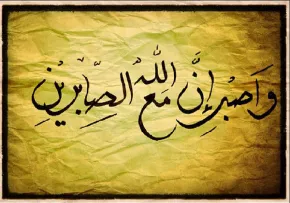 وَاصْبِر إِنَّ مَعَ اللهُ الصَّابِرِين